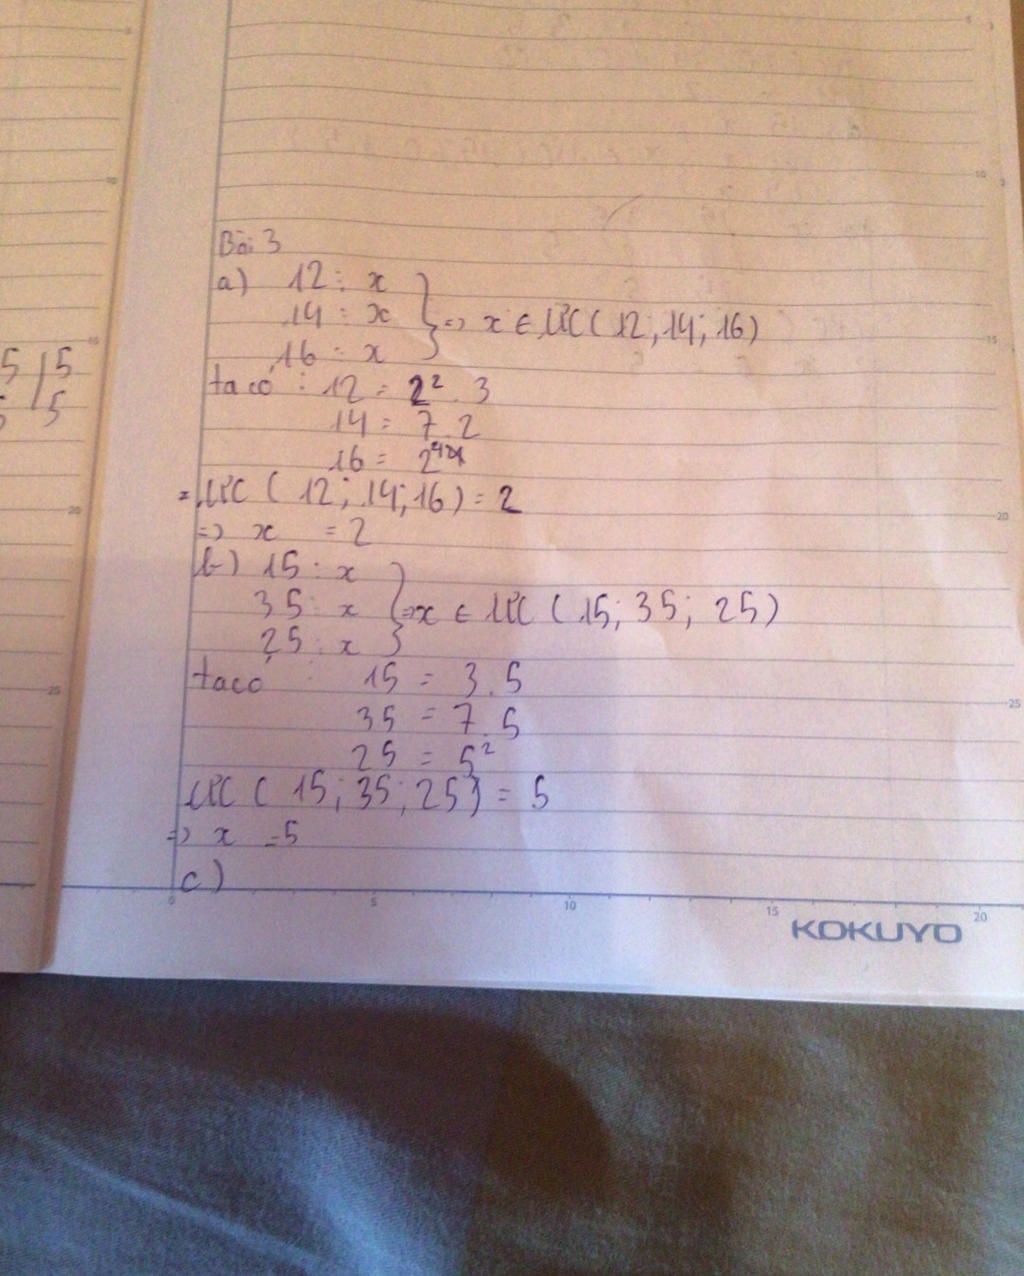 5 | 5
5
Bài 3
a) 12 ⋮ x
14 ⋮ x } => x ∈ ƯC ( 12, 14; 16)
16 ⋮ x
ta có : 12 = 2². 3
14 = 7.2
16 = 2⁴
= ƯC ( 12; 14; 16) = 2
=> x = 2
b) 15 ⋮ x
35 ⋮ x } => x ∈ ƯC ( 15; 35; 25)
25 ⋮ x
ta có : 15 = 3.5
35 = 7.5
25 = 5²
ƯC ( 15; 35; 25) = 5
=> x = 5
c)
0 5 10 15 20
KOKUYO